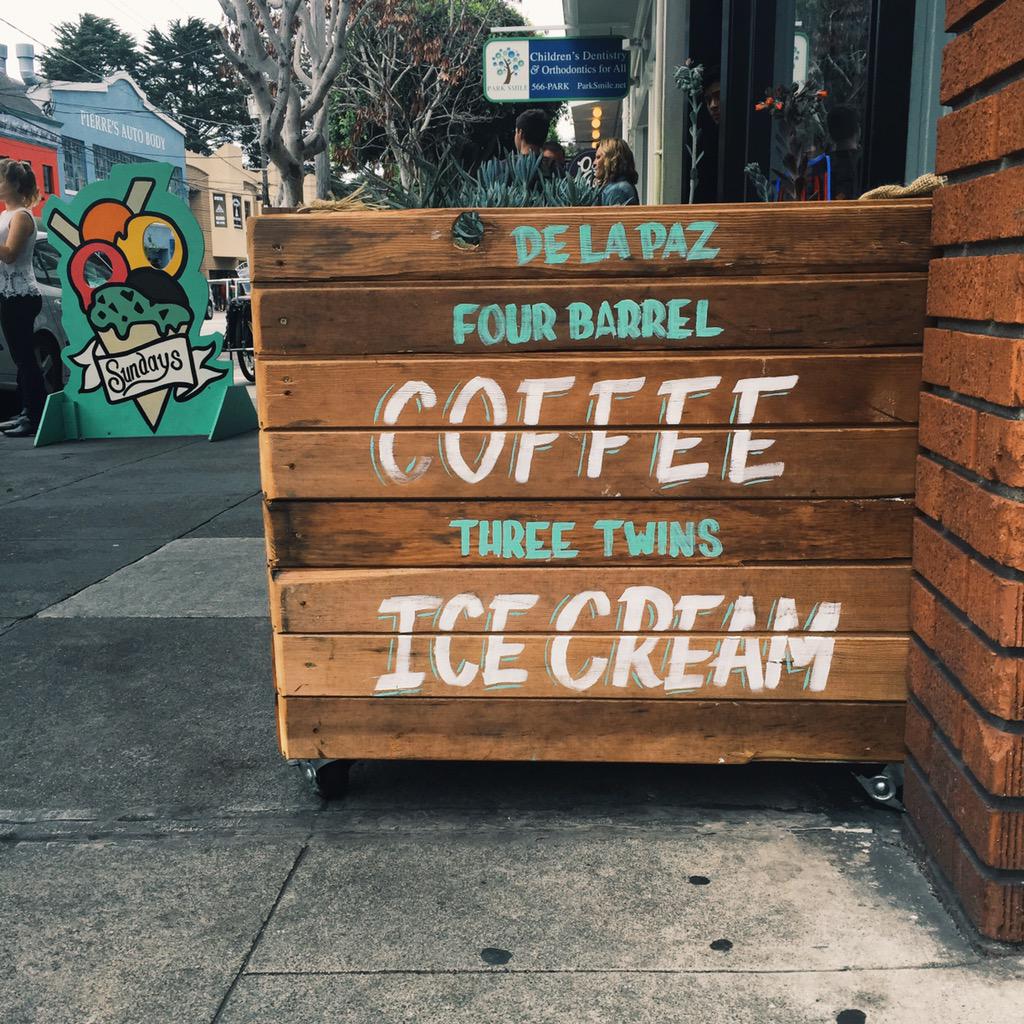 Children's Dentistry
& Orthodontics for All
PARK SMILE
566-PARK ParkSmile.net
PIERRE'S AUTO BODY
Sundays
DE LA PAZ
FOUR BARREL
COFFEE
THREE TWINS
ICE CREAM